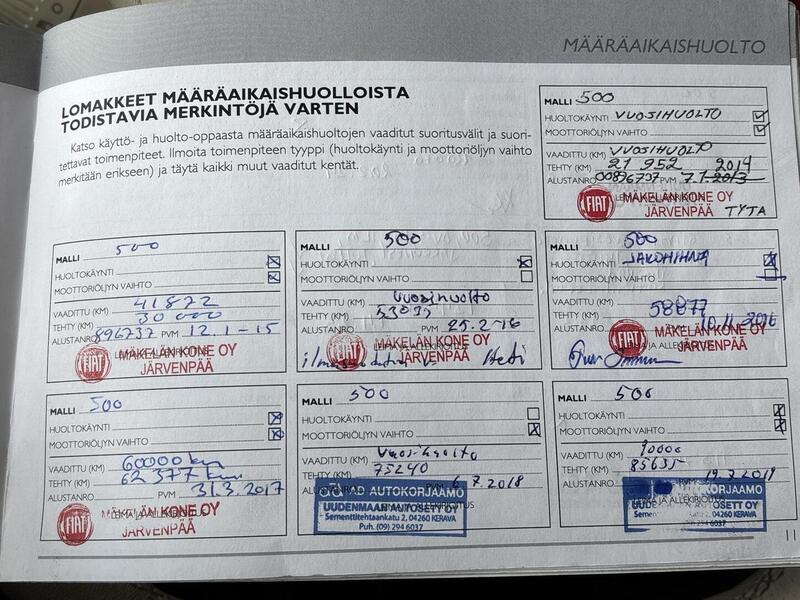 MÄÄRÄAIKAISHUOLTO
LOMAKKEET MÄÄRÄAIKAISHUOLLOISTA
TODISTAVIA MERKINTÖJÄ VARTEN
Katso käyttö- ja huolto-oppaasta määräaikaishuoltojen vaaditut suoritusvälit ja suori-
tettavat toimenpiteet. Ilmoita toimenpiteen tyyppi (huoltokäynti ja moottoriöljyn vaihto
merkitään erikseen) ja täytä kaikki muut vaaditut kentät.
MALLI 500
HUOLTOKÄYNTI VUOSIHUOLTO
MOOTTORIÖLJYN VAIHTO
VAADITTU (KM) VUOSIHUOLTO
TEHTY (KM) 21 952 2014
ALUSTANRO 00896737 PVM 7.1.2013
FIAT MÄKELÄN KONE OY
JÄRVENPÄÄ TYTA
MALLI 500
HUOLTOKÄYNTI
MOOTTORIÖLJYN VAIHTO
VAADITTU (KM) 41822
TEHTY (KM) 30 000
ALUSTANRO 896737 PVM 12.1-15
FIAT MÄKELÄN KONE OY
JÄRVENPÄÄ
MALLI 500
HUOLTOKÄYNTI
MOOTTORIÖLJYN VAIHTO
VAADITTU (KM) Vuosihuolto
TEHTY (KM) 53035
ALUSTANRO PVM 25.2-16
FIAT MÄKELÄN KONE OY
JÄRVENPÄÄ
MALLI 500
HUOLTOKÄYNTI JAKOHIHNA
MOOTTORIÖLJYN VAIHTO
VAADITTU (KM)
TEHTY (KM) 58877
ALUSTANRO 10.11.2016
FIAT MÄKELÄN KONE OY
JA ALLEKIRJOITUS
JÄRVENPÄÄ
MALLI 500
HUOLTOKÄYNTI
MOOTTORIÖLJYN VAIHTO
VAADITTU (KM) 60000 km
TEHTY (KM) 62 377 km
ALUSTANRO PVM 31.3.2017
FIAT MÄKELÄN KONE OY
JÄRVENPÄÄ
MALLI 500
HUOLTOKÄYNTI
MOOTTORIÖLJYN VAIHTO
VAADITTU (KM) Vuosihuolto
TEHTY (KM) 75240
ALUSTANRO PVM 6.7.2018
AD AUTOKORJAAMO
UUDENMAAN AUTOSETT OY
Sementtitehtaankatu 2, 04260 KERAVA
Puh. (09) 294 6037
MALLI 500
HUOLTOKÄYNTI
MOOTTORIÖLJYN VAIHTO
VAADITTU (KM) 90000
TEHTY (KM) 85635
ALUSTANRO PVM 19.7.2019
KORJAAMO
UUDENMAA OSETT OY
04260 KERAVA
294 6037
11